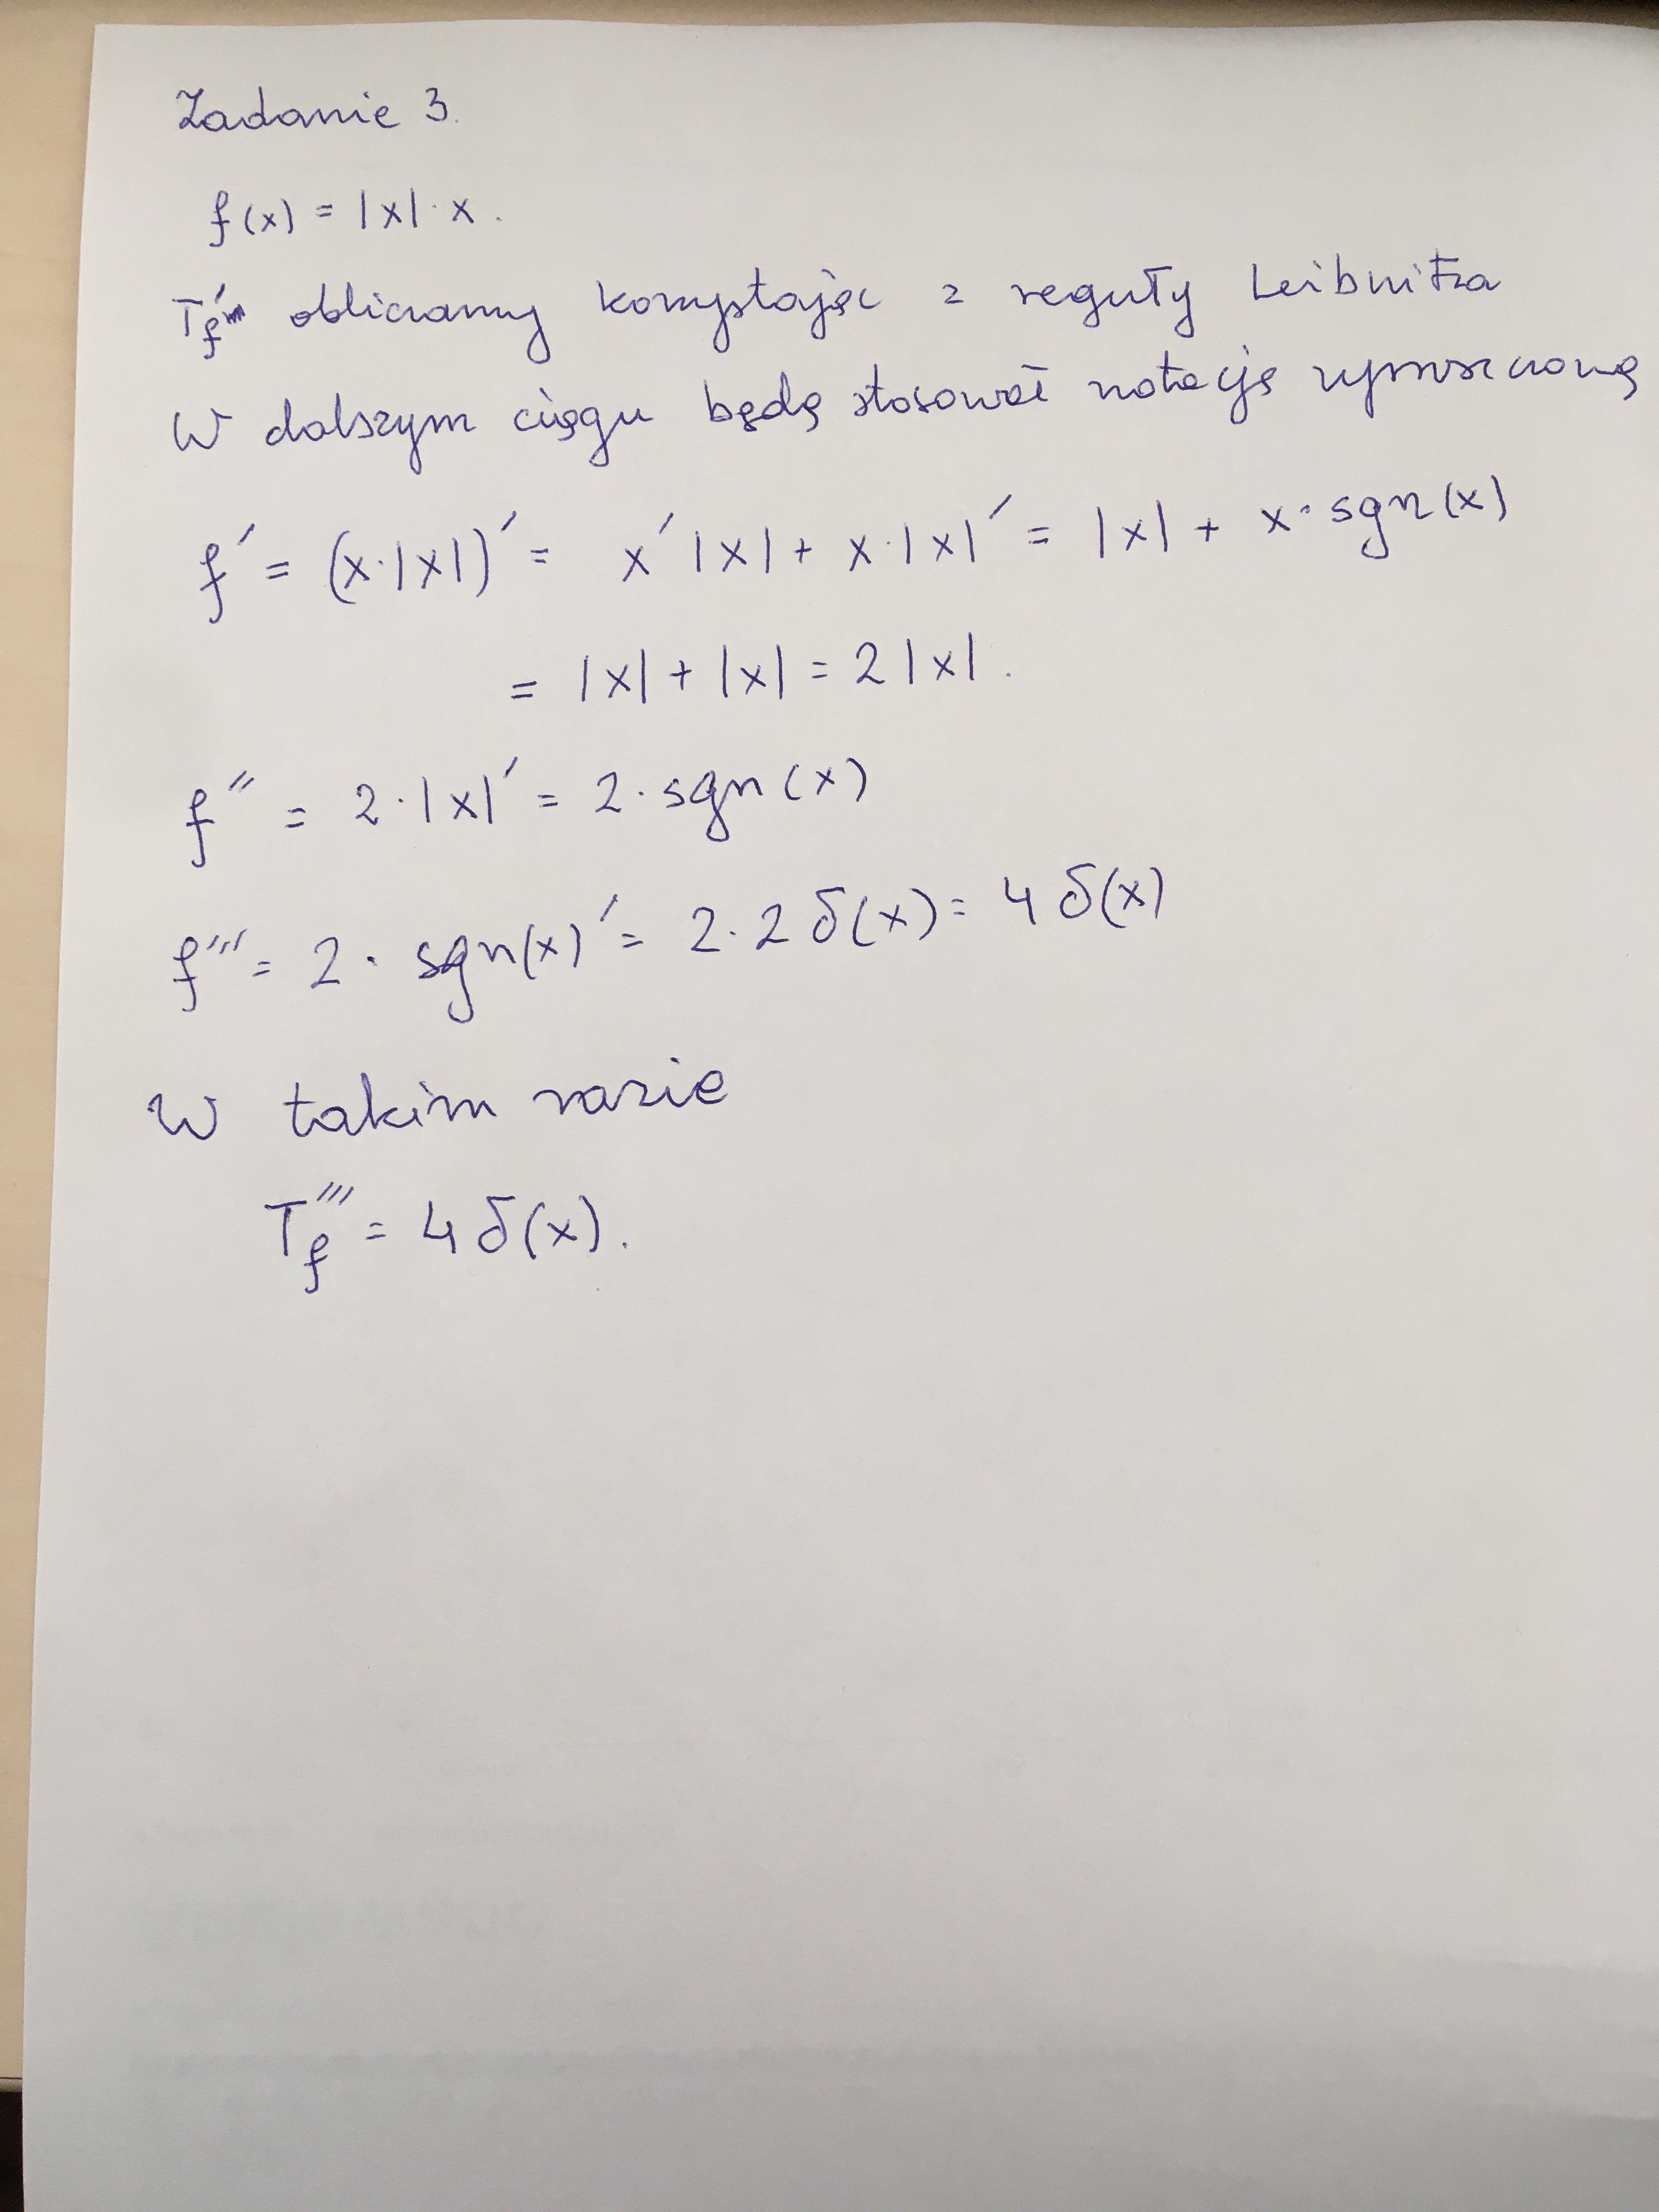 Zadanie 3.
f(x) = |x|·x.
T_f' obliczamy korzystając z reguły Leibnitza
W dalszym ciągu będę stosował notację uproszczoną
f' = (x·|x|)' = x'|x| + x·|x|' = |x| + x·sgn(x)
= |x| + |x| = 2|x|.
f'' = 2·|x|' = 2·sgn(x)
f''' = 2·sgn(x)' = 2·2δ(x) = 4δ(x)
W takim razie
T_f''' = 4δ(x).